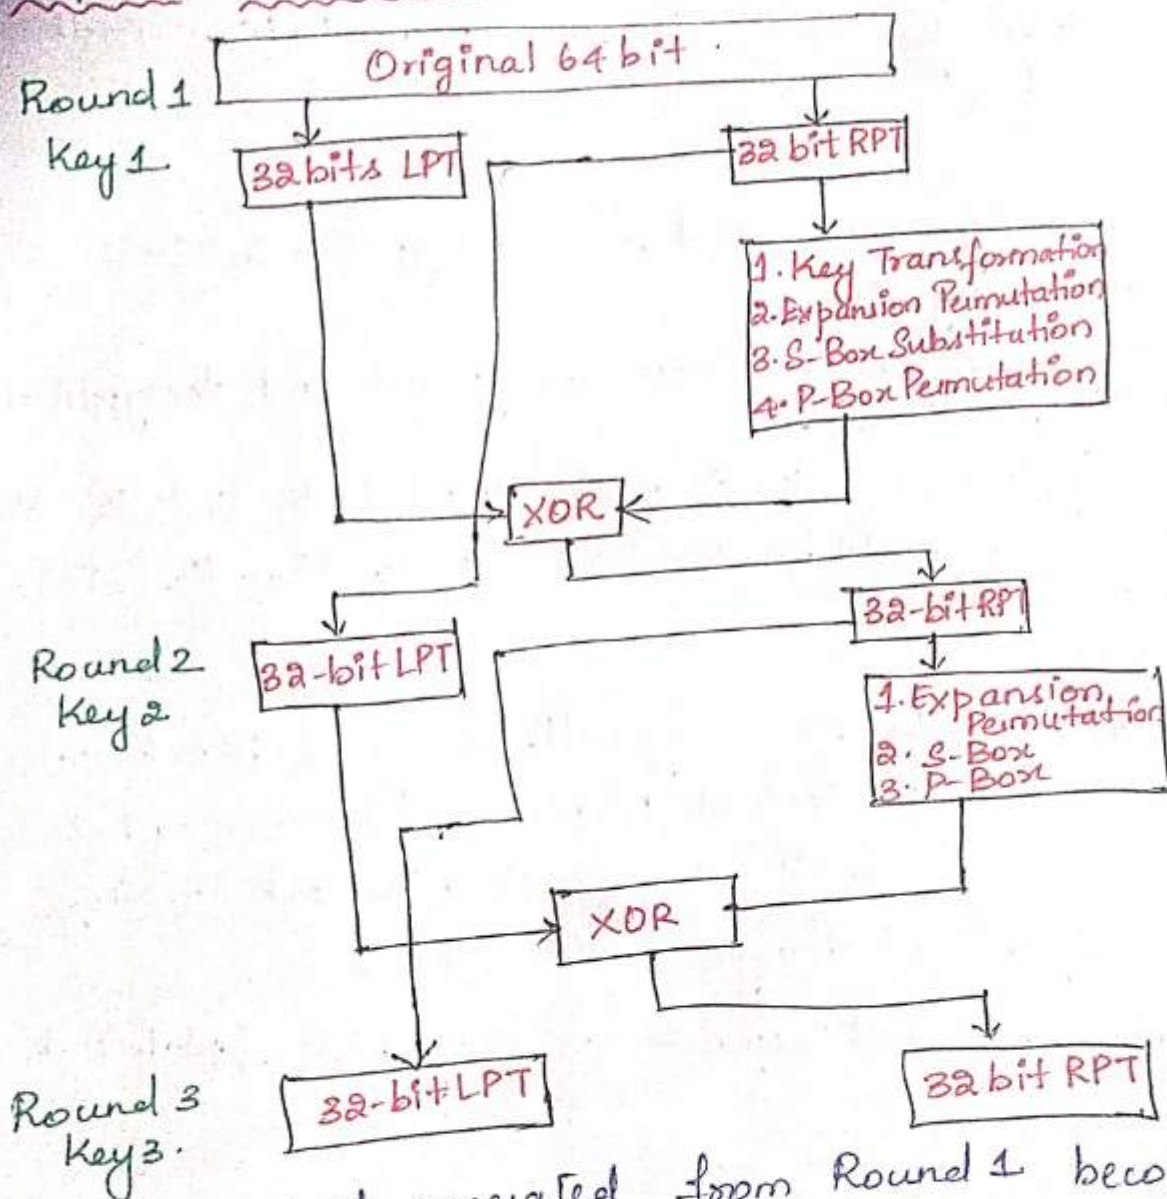 Original 64 bit
Round 1
Key 1
32 bits LPT
32 bit RPT
1. Key Transformation
2. Expansion Permutation
3. S-Box Substitution
4. P-Box Permutation
XOR
32-bit RPT
Round 2
Key 2
32-bit LPT
1. Expansion
Permutation
2. S-Box
3. P-Box
XOR
Round 3
Key 3.
32-bit LPT
32 bit RPT
from Round 1